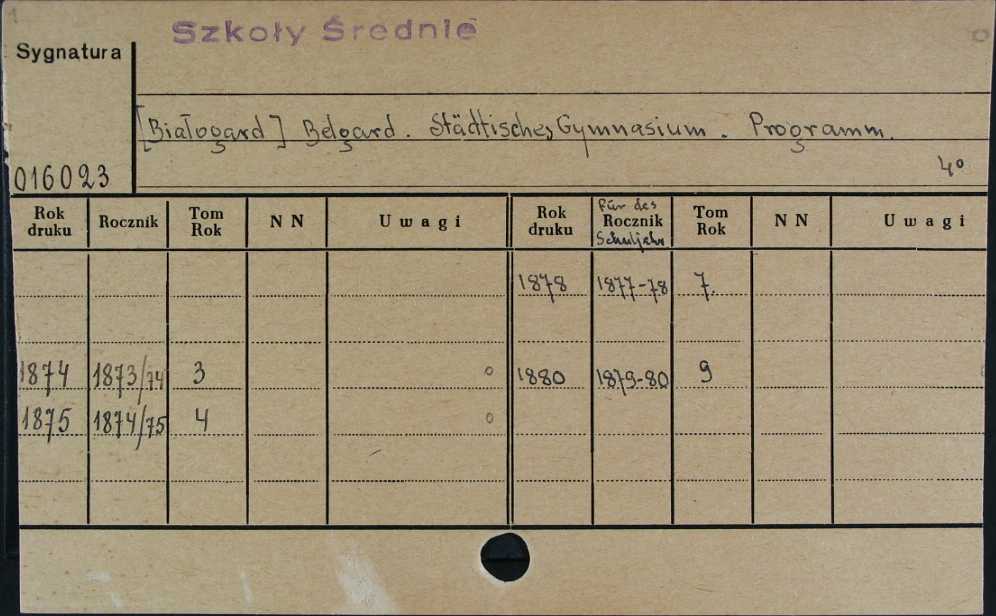 Szkoły Średnie
Sygnatura
[Białogard] Belgard. Städtisches Gymnasium. Programm.
016023
4°
Rok druku Rocznik Tom Rok NN Uwagi Rok druku für des Rocznik Schuljahr Tom Rok NN Uwagi
1878 1877-78 7.
1874 1873/74 3 1880 1879-80 9
1875 1874/75 4